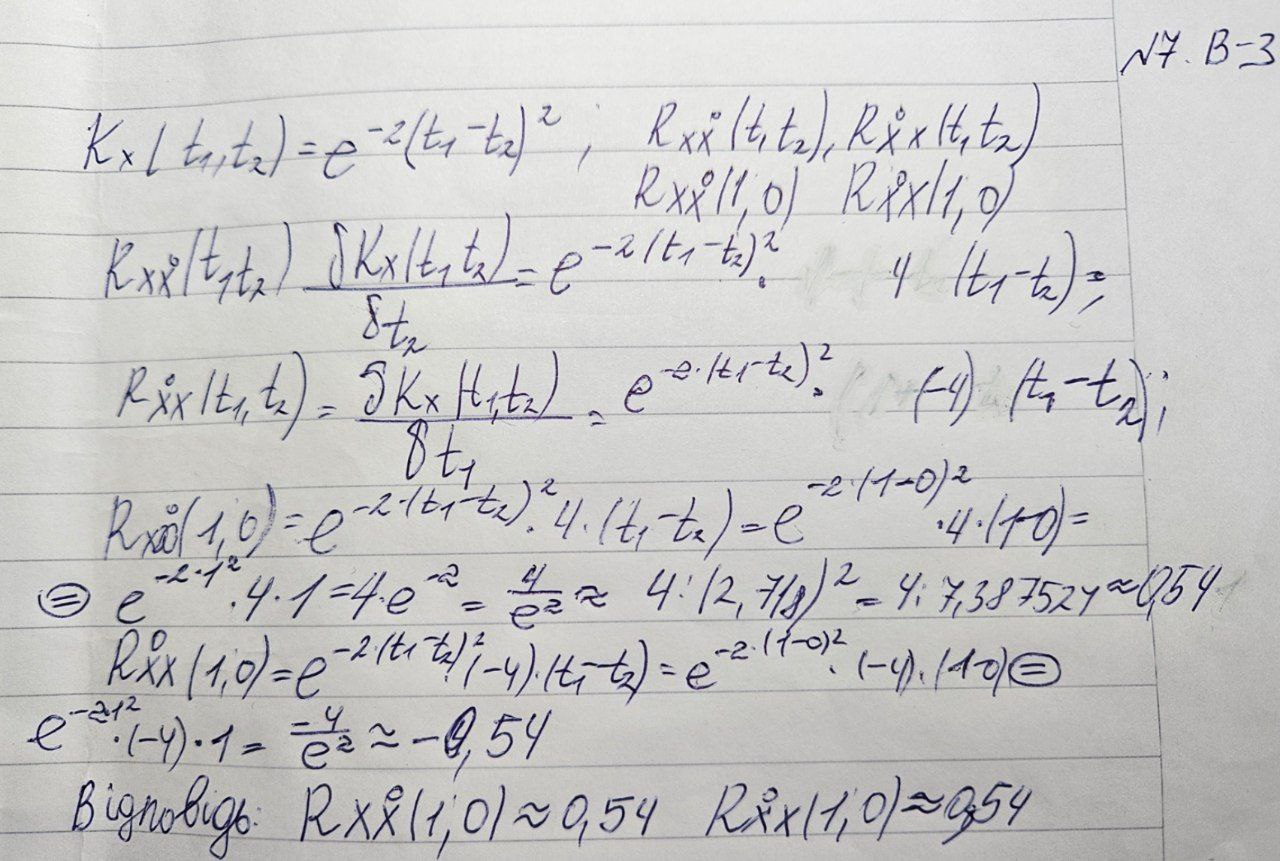 №7. В-3
Kx(t₁,t₂)=e^{-2(t₁-t₂)²}; Rxẋ(t₁t₂), Rẋx(t₁t₂)
Rxẋ(1,0) Rẋx(1,0)
Rxẋ(t₁t₂) δKx(t₁t₂)/δt₂ = e^{-2(t₁-t₂)²}· 4 (t₁-t₂)=;
Rẋx(t₁,t₂) = δKx(t₁,t₂)/δt₁ = e^{-2·(t₁-t₂)²}· (-4) (t₁-t₂);
Rxẋ(1,0)=e^{-2·(t₁-t₂)²}·4·(t₁-t₂)=e^{-2·(1-0)²}·4·(1-0)=
⊜ e^{-2·1²}·4·1=4·e^{-2}=4/e²≈ 4:(2,718)²=4:7,387524≈0,54
Rẋx(1,0)=e^{-2·(t₁-t₂)²}·(-4)·(t₁-t₂)=e^{-2·(1-0)²}·(-4)·(1-0)⊜
e^{-2·1²}·(-4)·1=-4/e²≈-0,54
Відповідь: Rxẋ(1,0)≈0,54 Rẋx(1,0)≈0,54